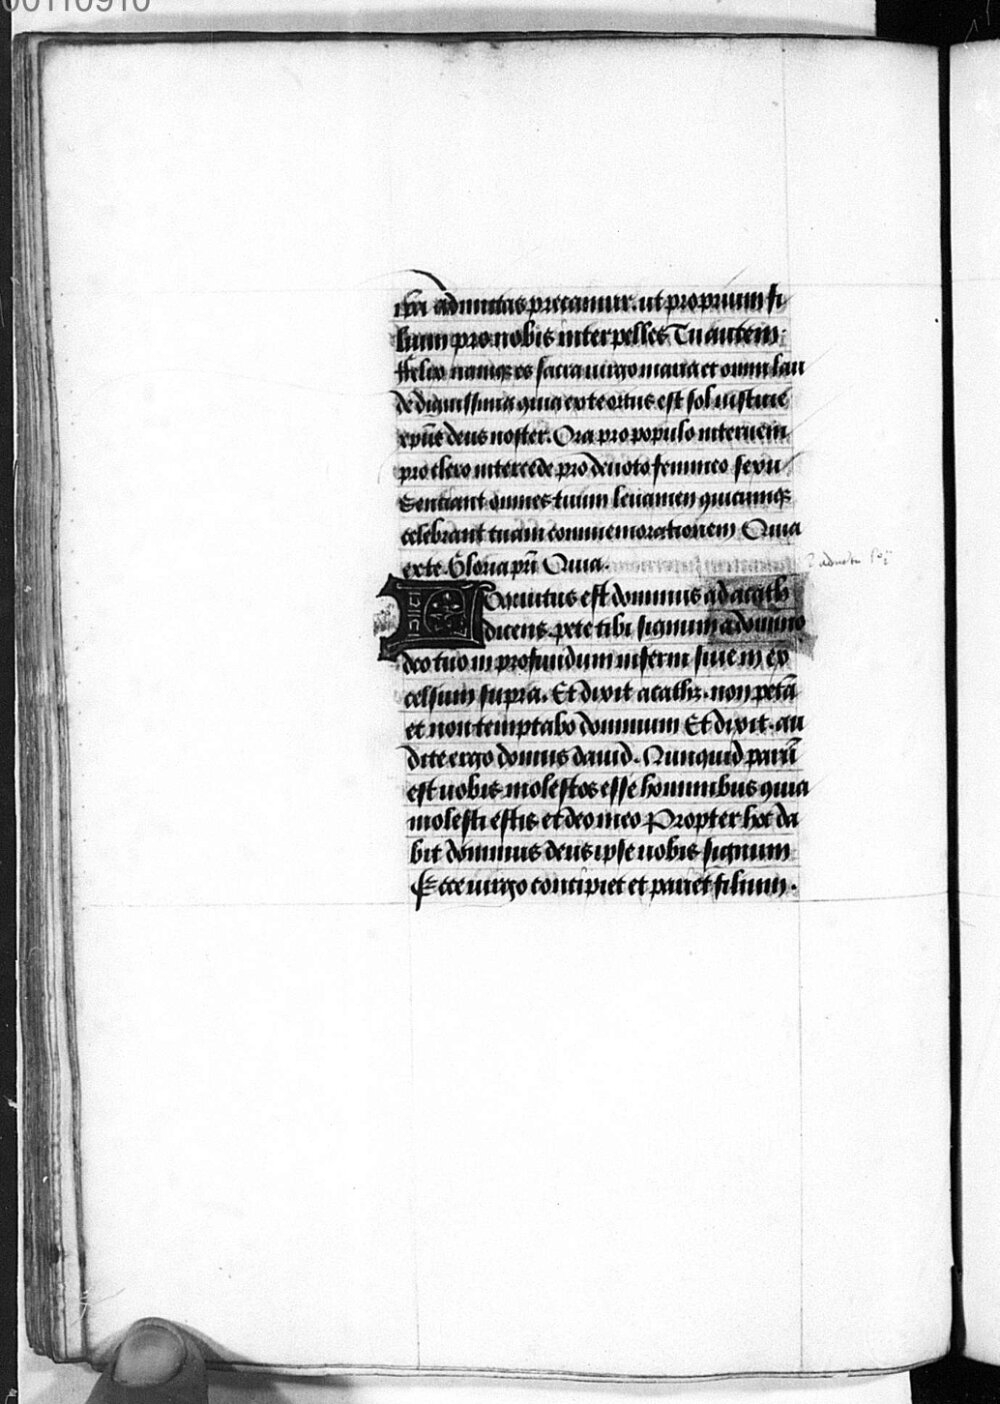 00110910
admittas precamur. ut proprium fi
lium pro nobis interpelles Tu autem.
Felix namqꝫ es sacra uirgo maria et omni lau
de dignissima quia ex te ortus est sol iusticie
xpūs deus noster. Ora pro populo interueni
pro clero intercede pro deuoto femineo sexu
Senciant omnes tuum leuamen quicumqꝫ
celebrant tuam commemorationem Quia
ex te. Gloria pri Quia.
Locutus est dominus ad acath
dicens. pete tibi signum a domino
deo tuo in profundum inferni siue in ex
celsum supra. Et dixit acathz. non petā
et non temptabo dominum Et dixit. au
dite ergo domus dauid. Nunquid parū
est uobis molestos esse hominibus quia
molesti estis et deo meo Propter hoc da
bit dominus deus ipse uobis signum
Ecce uirgo concipiet et pariet filium.